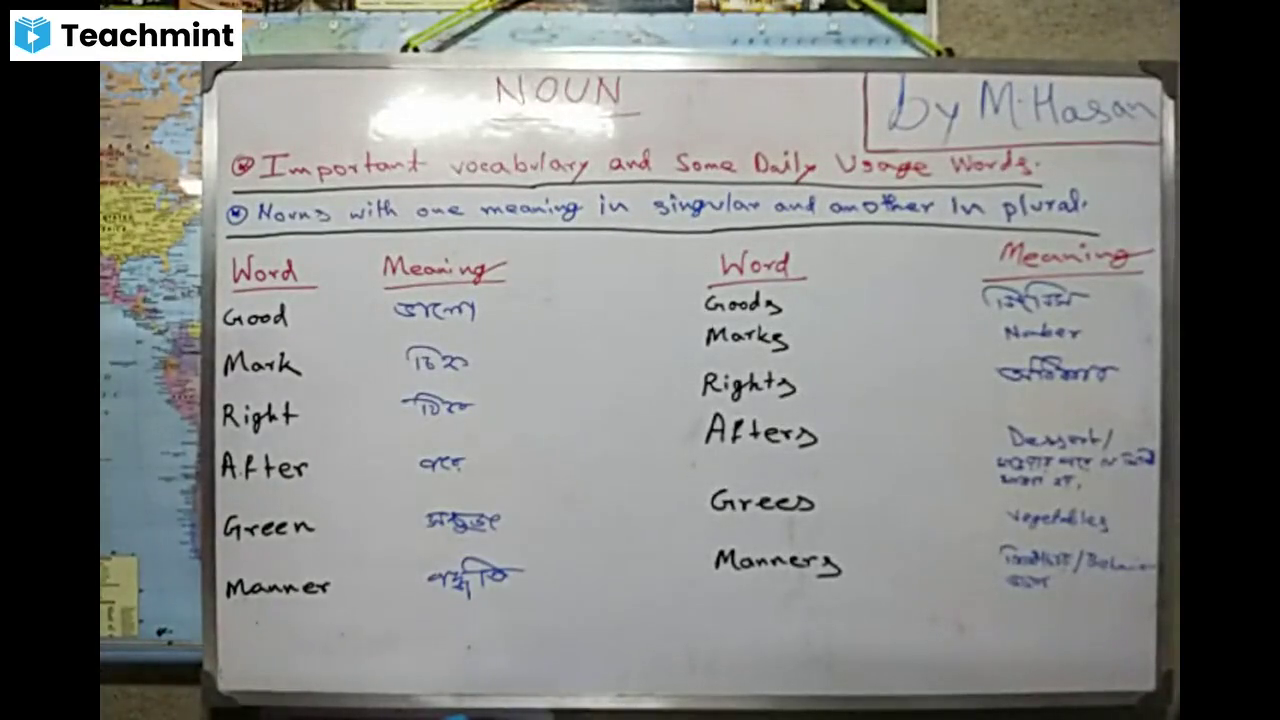 Teachmint
NOUN
by M. Hasan
Important vocabulary and Some Daily Usage Words.
Nouns with one meaning in singular and another in plural.
Word Meaning Word Meaning
Good ভালো Goods
Mark চিহ্ন Marks Number
Right ঠিক Rights অধিকার
After পরে Afters Dessert/
Green সবুজ Grees vegetables
Manner পদ্ধতি Manners